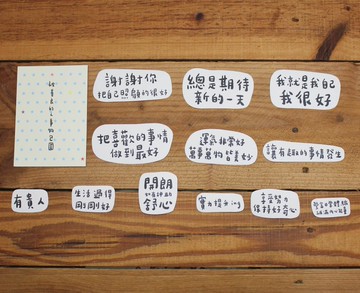 謝謝你
把自己照顧的很好
總是期待
新的一天
我就是我自己
我很好
把喜歡的事情
做到最好
運氣非常好
萬事萬物皆美妙
讓有趣的事情發生
有貴人
生活過得
剛剛好
開朗
舒心
實力提升ing
享受努力
保持好奇心